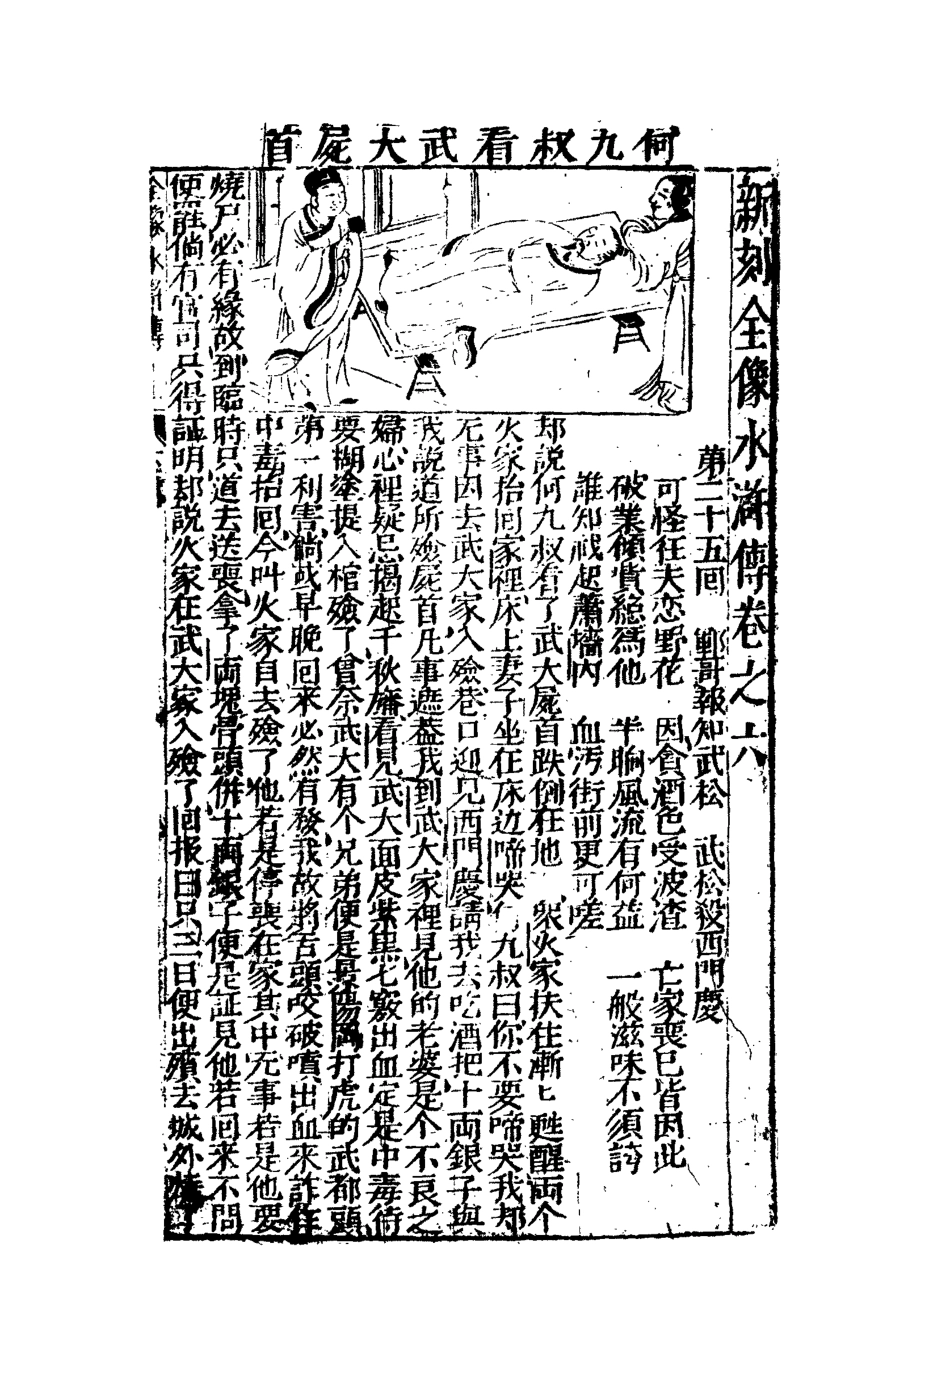 何九叔看武大屍首
新刻全像水滸傳卷之六
第二十五回 鄆哥報知武松 武松殺西門慶
可怪狂夫恋野花 因貪酒色受波渣 亡家喪已皆因此
破業傾貲総為他 半晌風流有何益 一般滋味不須誇
誰知祸起蕭墻內 血汚街前更可嗟
却説何九叔看了武大屍首跌倒在地 衆火家扶住漸匕甦醒両个
火家抬囬家裡床上妻子坐在床边啼哭何九叔曰你不要啼哭我却
无事因去武大家入殮巷口迎見西門慶請我去吃酒把十両銀子與
我說道所殮屍首凡事遮盖我到武大家裡見他的老婆是个不良之
婦心裡疑忌揭起千秋旛看見武大面皮紫黒七竅出血定是中毒待
要糊塗提入棺殮了曾奈武大有个兄弟便是景陽岡打虎的武都頭
第一利害倘或早晚囬來必然有發我故將舌頭咬破噴出血來詐作
中毒抬囬今叫火家自去殮了他若是停喪在家其中无事若是他要
燒尸必有緣故到臨時只道去送喪拿了両塊骨頭併十両銀子便是証見他若囬來不問
便罷倘有官司只得証明却説火家在武大家入殮了囬报曰只三日便出殯去城外燒了
全像水滸傳